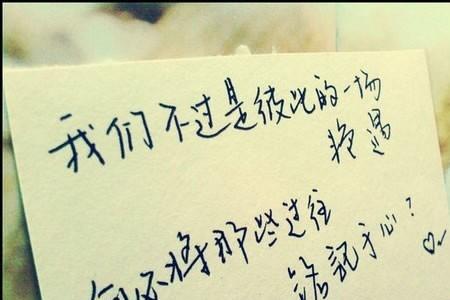 我们不过是彼此的一场
将那些过往
记于心?